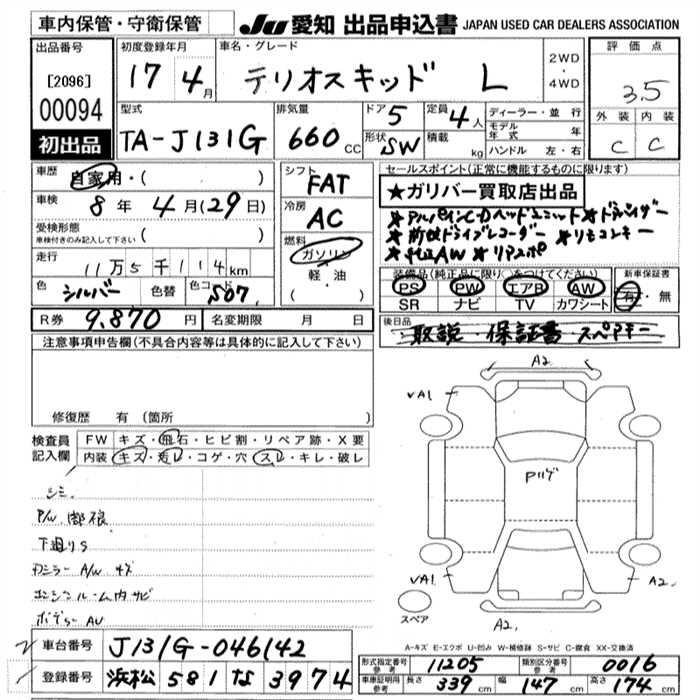 車内保管・守衛保管 JU 愛知 出品申込書 JAPAN USED CAR DEALERS ASSOCIATION
出品番号 初度登録年月 車名・グレード 評価点
[2096] 17 4月 テリオスキッド L 2WD・4WD 3.5
00094 型式 排気量 ドア 5 定員 4人 ディーラー・並行 外装 内装
初出品 TA-J131G 660cc 形状 SW 積載 kg モデル年式 年 C C
ハンドル 左・右
車歴 自家用・( ) シフト FAT セールスポイント(正常に機能するものに限ります)
車検 8年 4月(29日) 冷房 AC ★ガリバー買取店出品
受検形態 車検付きのみ記入して下さい ( ) 燃料 ガソリン ★アルパインCDヘッドユニット★ドアバイザー
★前後ドライブレコーダー ★リモコンキー
走行 11万5千114km 軽・油 ★純正AW ★リアスポ
色 シルバー 色替 色コード S07 ( ) 装備品(純正品に限り○をつけてください) 新車保証書
PS PW エアB AW 有・無
SR ナビ TV カワシート
R券 9,870円 名変期限 月 日 後日品 取説・保証書 スペアキー
注意事項申告欄(不具合内容等は具体的に記入して下さい)
修復歴 有 (箇所
検査員記入欄 FW キズ・飛石・ヒビ割・リペア跡・X要
内装 キズ・汚レ・コゲ・穴・スレ・キレ・破レ
シミ
P/W
下廻りS
カミラー A/W キズ
エンジンルーム内サビ
ボデー AU
A2
VA1 A1
Pルーフ
VA1 A2
スペア A2
A-キズ E-エクボ U-凹み W-補修跡 S-サビ C-腐食 XX-交換済
車台番号 J131G-046142
登録番号 浜松 581 な 3974
形式指定番号 参考 11205 類別区分番号 参考 0016
車庫証明用 参考 長さ 339cm 幅 147cm 高さ 174cm